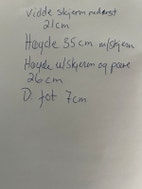 Vidde skjerm nederst
21cm
Høyde 35cm m/skjerm
Høyde u/skjerm og pære
26cm
D. fot 7cm